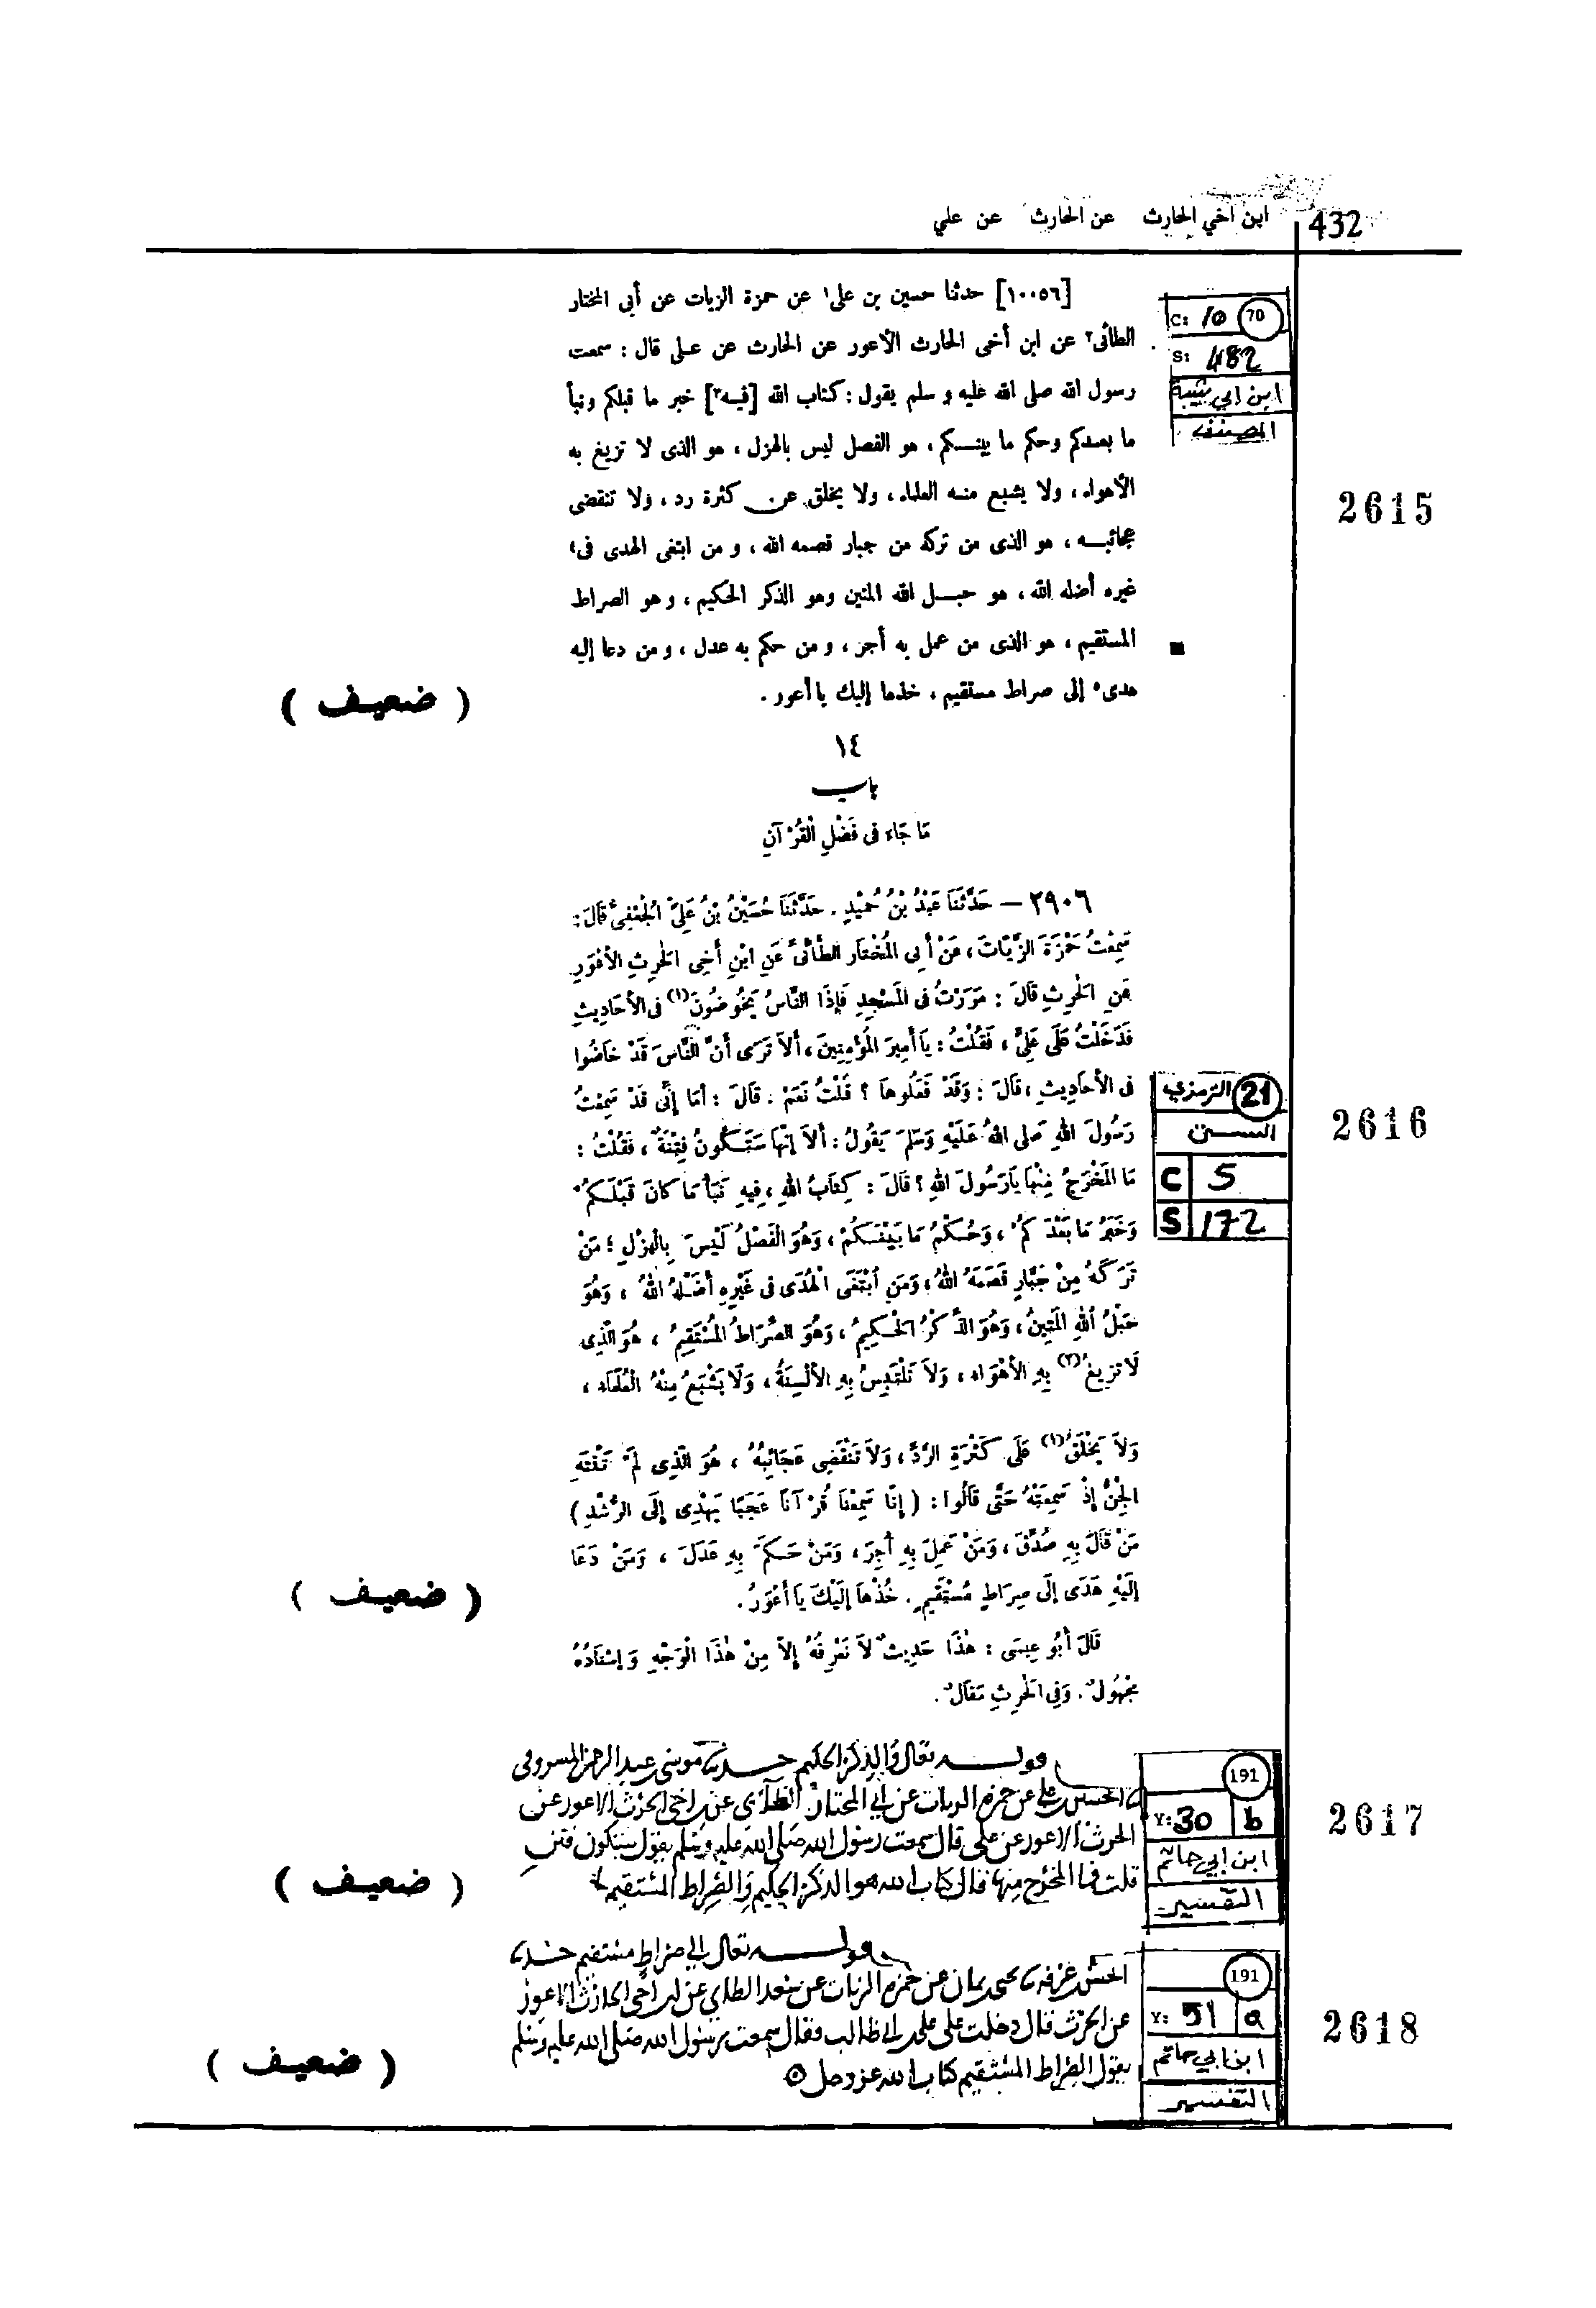 432
ابن اخي الحارث عن الحارث عن علي
70
C: 10
S: 482
ابن ابي شيبة
المصنف
2615
[١٠٠٥٦] حدثنا حسين بن على١ عن حمزة الزيات عن أبى المختار
الطائى٢ عن ابن أخى الحارث الأعور عن الحارث عن على قال : سمعت
رسول الله صلى الله عليه و سلم يقول : كتاب الله [فيه٣] خبر ما قبلكم ونبأ
ما بعدكم وحكم ما بينكم ، هو الفصل ليس بالهزل ، هو الذى لا تزيغ به
الأهواء ، ولا يشبع منه العلماء ، ولا يخلق عن كثرة رد ، ولا تنقضى
عجائبه ، هو الذى من تركه من جبار قصمه الله ، و من ابتغى الهدى فى٤
غيره أضله الله ، هو حبل الله المتين وهو الذكر الحكيم ، و هو الصراط
المستقيم ، هو الذى من عمل به أجر ، و من حكم به عدل ، و من دعا إليه
هدى٥ إلى صراط مستقيم ، خذها إليك يا أعور .
( ضعيف )
١٤
باب
مَا جَاءَ فى فَضْلِ الْقُرْآنِ
٢٩٠٦ – حَدَّثَنَا عَبْدُ بْنُ حُمَيْدٍ . حَدَّثَنَا حُسَيْنُ بْنُ عَلِىٍّ الْجُعْفِىُّ قَالَ :
سَمِعْتُ حَمْزَةَ الزَّيَّاتَ ، عَنْ أَبِى الْمُخْتَارِ الطَّائِىِّ عَنِ ابْنِ أَخِى الْحٰرِثِ الْأَعْوَرِ
عَنِ الْحٰرِثِ قَالَ : مَرَرْتُ فى الْمَسْجِدِ فَإِذَا النَّاسُ يَخُوضُونَ(١) فى الأَحَادِيثِ
فَدَخَلْتُ عَلَى عَلِىٍّ ، فَقُلْتُ : يَا أَمِيرَ الْمُؤْمِنِينَ ، أَلَا تَرَى أَنَّ النَّاسَ قَدْ خَاضُوا
فى الأَحَادِيثِ ، قَالَ : وَقَدْ فَعَلُوهَا ؟ قُلْتُ نَعَمْ . قَالَ : أَمَا إِنِّى قَدْ سَمِعْتُ
رَسُولَ اللهِ صَلى اللهُ عَلَيْهِ وَسَلَّمَ يَقُولُ : أَلَا إِنَّهَا سَتَكُونُ فِتْنَةٌ ، فَقُلْتُ :
مَا الْمَخْرَجُ مِنْهَا يَا رَسُولَ اللهِ ؟ قَالَ : كِتَابُ اللهِ ، فِيهِ نَبَأُ مَا كَانَ قَبْلَكُمْ
وَخَبَرُ مَا بَعْدَكُمْ ، وَحُكْمُ مَا بَيْنَكُمْ ، وَهُوَ الْفَصْلُ لَيْسَ بِالْهَزْلِ ؛ مَنْ
تَرَكَهُ مِنْ جَبَّارٍ قَصَمَهُ اللهُ ، وَمَنِ ابْتَغَى الْهُدَى فى غَيْرِهِ أَضَلَّهُ اللهُ ، وَهُوَ
حَبْلُ اللهِ الْمَتِينُ ، وَهُوَ الذِّكْرُ الْحَكِيمُ ، وَهُوَ الصِّرَاطُ الْمُسْتَقِيمُ ، هُوَ الَّذِى
لَا تَزِيغُ(٢) بِهِ الأَهْوَاءُ ، وَلَا تَلْتَبِسُ بِهِ الأَلْسِنَةُ ، وَلَا يَشْبَعُ مِنْهُ الْعُلَمَاءُ ،
وَلَا يَخْلَقُ(١) عَلَى كَثْرَةِ الرَّدِّ ، وَلَا تَنْقَضِى عَجَائِبُهُ ، هُوَ الَّذِى لَمْ تَنْتَهِ
الْجِنُّ إِذْ سَمِعَتْهُ حَتَّى قَالُوا : ( إِنَّا سَمِعْنَا قُرْآنًا عَجَبًا يَهْدِى إِلَى الرُّشْدِ )
مَنْ قَالَ بِهِ صُدِّقَ ، وَمَنْ عَمِلَ بِهِ أُجِرَ ، وَمَنْ حَكَمَ بِهِ عَدَلَ ، وَمَنْ دَعَا
إِلَيْهِ هَدَى إِلَى صِرَاطٍ مُسْتَقِيمٍ . خُذْهَا إِلَيْكَ يَا أَعْوَرُ .
( ضعيف )
21 الترمذي
السنن
C 5
S 172
2616
قَالَ أَبُو عِيسَى : هٰذَا حَدِيثٌ لَا نَعْرِفُهُ إِلَّا مِنْ هٰذَا الْوَجْهِ وَإِسْنَادُهُ
مَجْهُولٌ . وَفِى الْحٰرِثِ مَقَالٌ .
191
Y: 30 b
ابن ابي حاتم
التفسير
2617
قوله تعالى والذكر الحكيم حدثنا موسى بن عبد الرحمن المسروقى
ثنا الحسين بن على عن حمزه الزيات عن ابي المختار الطائي عن ابن اخي الحرث الاعور عن
الحرث الاعور عن على قال سمعت رسول الله صلى الله عليه وسلم يقول ستكون فتن
قلت فما المخرج منها قال كتاب الله هو الذكر الحكيم والصراط المستقيم
( ضعيف )
191
Y: 51 a
ابن ابي حاتم
التفسير
2618
قوله تعالى الى صراط مستقيم حدثنا
الحسن بن عرفه ثنا يحيى بن يمان عن حمزه الزيات عن سعد الطائي عن ابن اخي الحارث الاعور
عن الحرث قال دخلت على على بن ابي طالب فقال سمعت رسول الله صلى الله عليه وسلم
يقول الصراط المستقيم كتاب الله عز وجل
( ضعيف )